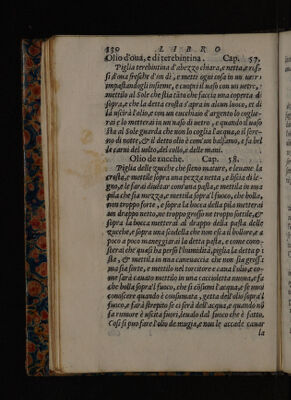 150 LIBRO
Olio d'oua, e di terebintina. Cap. 57.
Piglia terebintina d'abezzo chiara, e netta, e rossi
si d'oua fresche d'un dì, e metti ogni cosa in un
impastandogli insieme, e cuopri il uaso con un uetro,
mettilo al Sole che stia
sopra, e che la detta crosta s'apra in alcun luoco, et di
là uscirà l'olio, e con un cucchiaio d'argento lo coglie-
rai e lo metterai in un uaso di uetro, e quando il uaso
sta al Sole guarda che non lo coglia l'acqua, ò il sere-
no di notte, & il detto olio è com'un balsamo, e fa bel
le carni del uolto, del collo, e delle mani.
Olio de zucche. Cap. 58.
Piglia delle zucche che sieno mature, e leuane la
crosta, e mettile sopra una pezza netta,
gno, e le farai diuentar com'una pasta, e mettila in una
pila che sia mezza, e mettila sopra'l fuoco, che bolla,
non troppo forte, e sopra la bocca della pila metterai
un drappo netto, ne troppo grosso ne troppo sottile, &
sopra la bocca metterai al drappo della pasta delle
zucche, e sopra una scudella che non esca il bollore, e à
poco a poco maneggiarai la detta pasta, e come cono-
scerai che quasi ha perso l'humidità, piglia la detta pa
sta, & mettila in una caneuaccia che non sia grossa
ma sia forte, e mettilo nel torcitore e cana l'olio, e co-
me sarà cauato mettilo in una caccioletta nuoua, e fa
che bolla sopra'l fuoco, che si consumi l'acqua, e se uuoi
conoscere quando è consumata, getta dell'olio sopra'l
fuoco, e farà strepito se ci serà dell'acqua, e quando nō
fa rumore è uscita fuori, leualo dal fuoco che è fatto.
Cosi si puo fare l'olio de mugia, e non le accade cauar
la